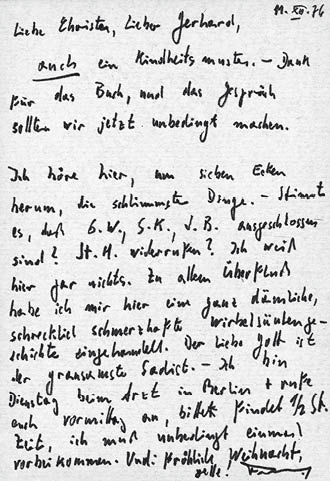 11. XII. 76
Liebe Christa, Lieber Gerhard,
auch ein Kindheitsmuster. – Dank
für das Buch, und das Gespräch
sollten wir jetzt unbedingt machen.
Ich höre hier, um sieben Ecken
herum, die schlimmsten Dinge. – Stimmt
es, daß G.W., S.K., J.B. ausgeschlossen
sind? St. H. widerrufen? Ich weiß
hier gar nichts. Zu allem Überfluß
habe ich mir hier eine ganz dämliche,
schrecklich schmerzhafte Wirbelsäulenge-
schichte eingehandelt. Der liebe Gott ist
der grausamste Sadist. – Ich bin
Dienstag beim Arzt in Berlin + rufe
euch vormittag an, bittet findet 1/2 St.
Zeit, ich muß unbedingt einmal
vorbeikommen. Und: fröhlich Weihnacht,
gelle.